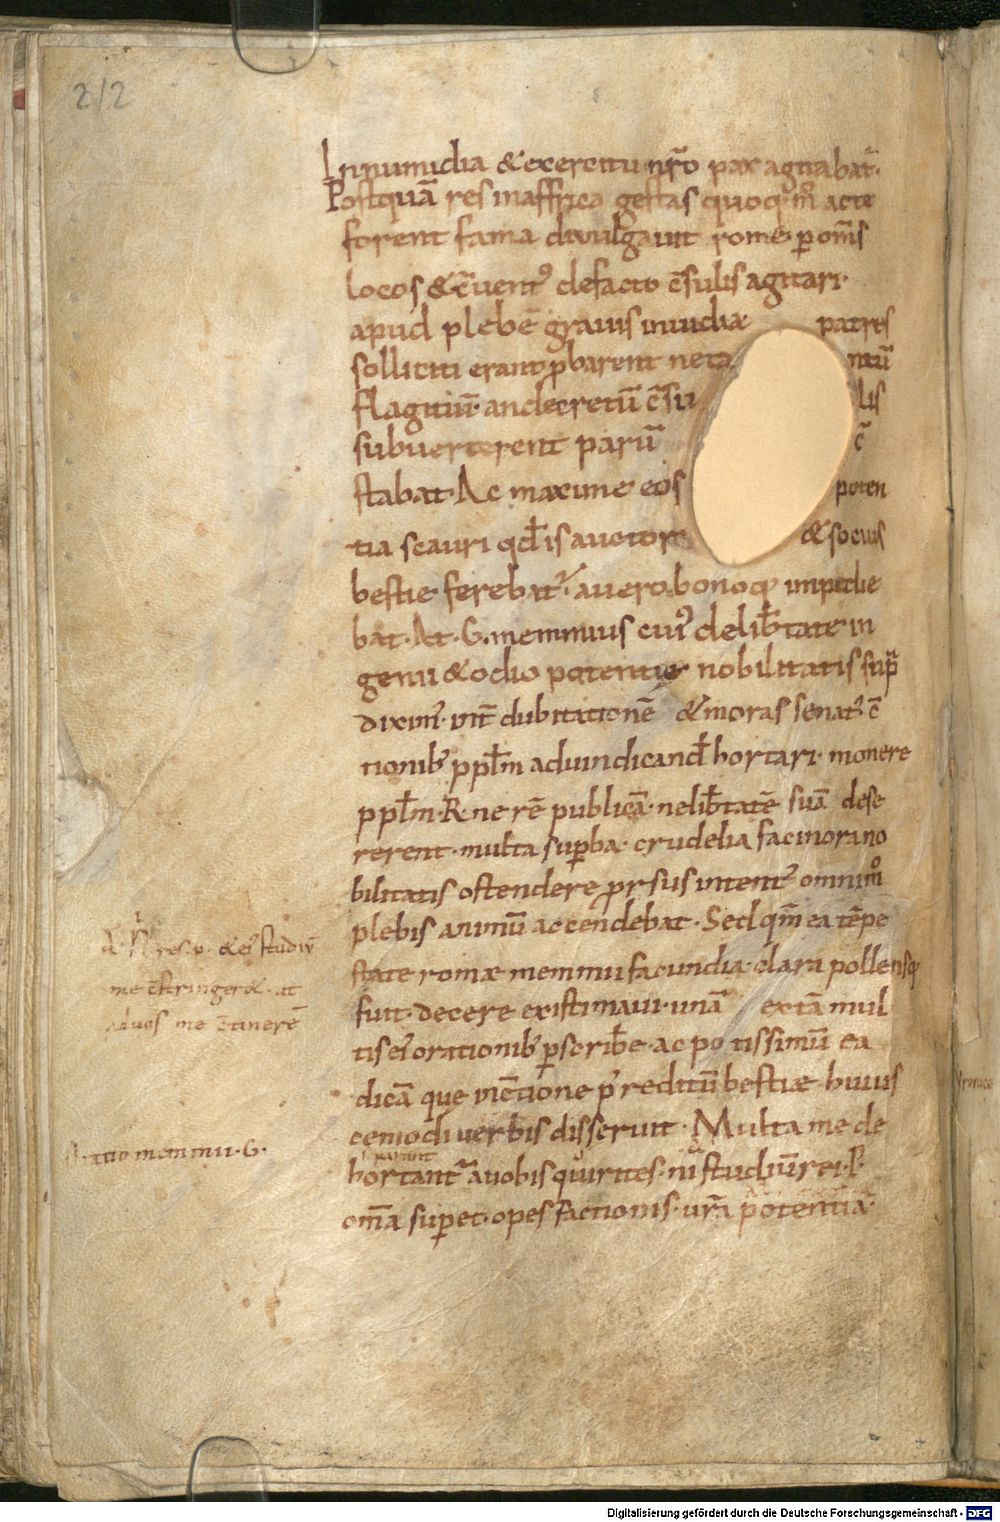 2/2
In numidia & exercitu nr̄o pax agitabat᷑.
Postquā res in affrica gestas quoq; m̊ acte
forent fama diuulgauit rome p om̄s
locos & c̄uent᷒ de facto c̄sulis agitari.
apud plebē grauis inuidiæ patres
solliciti erant ꝓbarent ne ta ntū
flagitiū. an decretū c̄su lis
subuerterent parū c̄
stabat. Ac maxime eos poten
tia scauri qđ is auctor & socius
bestie ferebat᷑. a uero bonoq; impedie
bat. At. G. memmius cui᷒ de lib̄tate in
genii & odio potentie nobilitatis sup̄
dixim᷒. int̄ dubitationē & moras senat᷒ c̄
tionib; ppl̄m ad uindicand̄ hortari. monere
ppl̄m. R. ne rē publicā. ne lib̄tatē suā dese
rerent. multa supba. crudelia facinora no
bilitatis ostendere ꝓrsus intent᷒ omni m̊
plebis animū accendebat. Sed qm̄ ea tēpe
state romæ memmii facundia. clara pollensq;
fuit. decere existimaui. unā ex tā mul
tis ei᷒ orationib; pscribe. ac potissimū ea
dicā que in c̄tione p᷒ reditū bestiæ. huius
cemodi uerbis disseruit. Multa me de
parant
hortant᷑ a uobis quirites. ni studiū rei. p.
om̄a supet. opes factionis. ur̄a potentia.
res. p. & ei᷒ studiū
me c̄stringer&. at
ad uos me c̄tinerē
tio memmii. G.
Digitalisierung gefördert durch die Deutsche Forschungsgemeinschaft - DFG